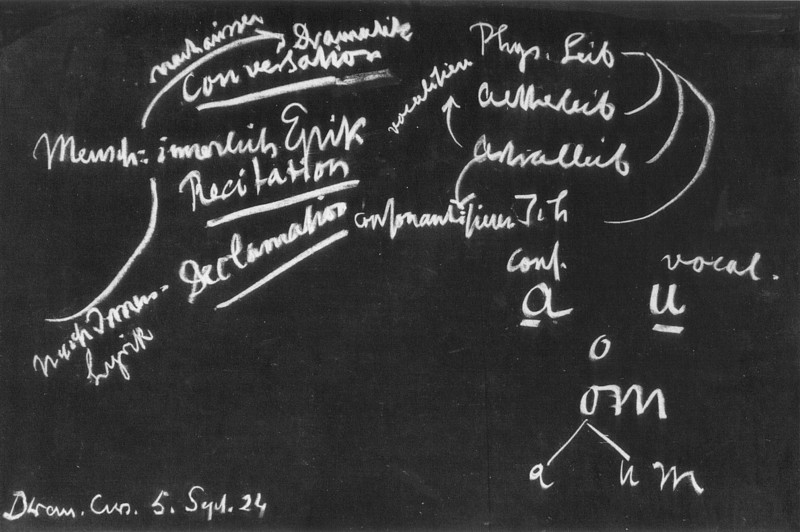 nach aussen
Dramatik
Conversation
Mensch = innerlich Epik
Recitation
Declamation
nach Innen =
Lyrik
Phys. Leib
Aetherleib
vocalisieren
Astralleib
consonantisieren Ich
cons. vocal.
a u
o
OM
a u m
Dram. Curs. 5. Sept. 24